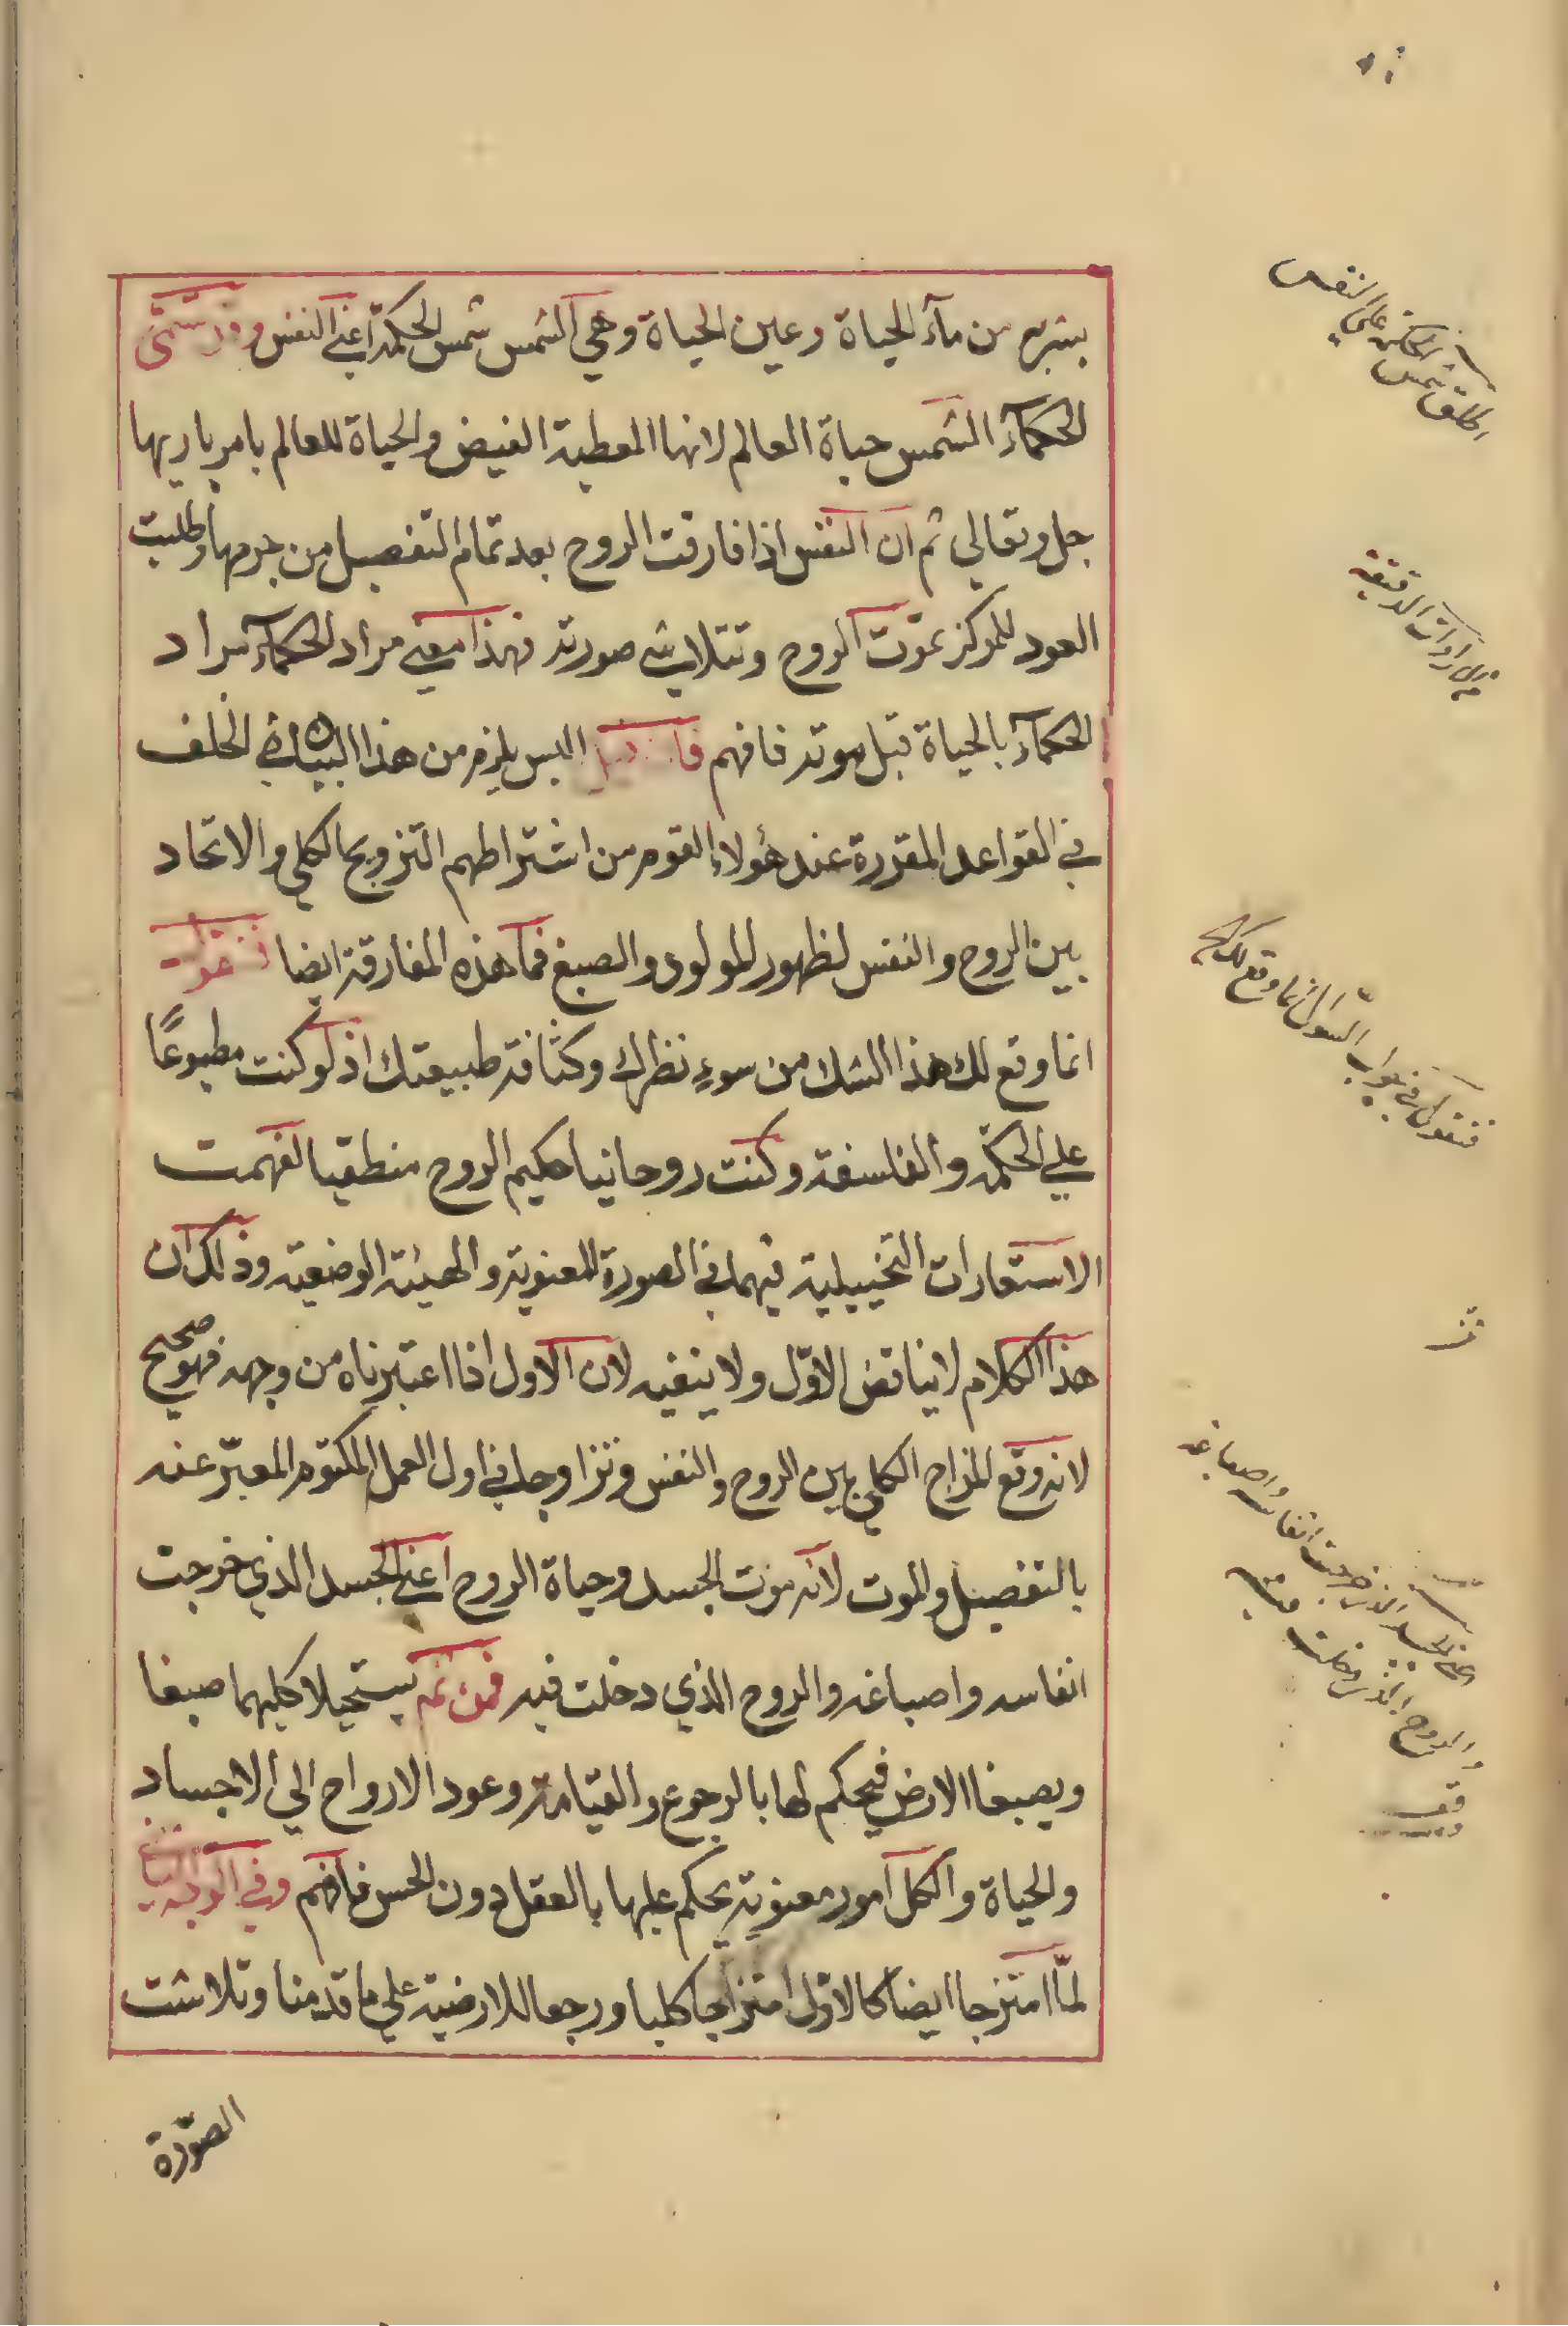 بشربه من مآء الحياة وعين الحياة وهي الشمس شمس الحكمة اعني النفس وقد سمّى
الحكمآء الشمس حياة العالم لانها المعطية الفيض والحياة للعالم بامر باريها
جل وتعالي ثم ان النفس اذا فارقت الروح بعد تمام التفصيل من جرمها وطلبت
العود للمركز تموت الروح وتتلاشي صورته فهذا معني مراد الحكمآء مراد
الحكمآء بالحياة قبل موته فافهم فان قيل اليس يلزم من هذا البيان الخلف
في القواعد المقررة عند هؤلاء القوم من اشتراطهم التزويج الكلي والاتحاد
بين الروح والنفس لظهور المولود والصبغ فما هذه المفارقة ايضا فنقول
انما وقع لك هذا الشك من سوء نظرك وكثافة طبيعتك اذ لو كنت مطبوعًا
علي الحكمة والفلسفة وكنت روحانيا حكيم الروح منطقيا لفهمت
الاستعارات التخييلية فيهما في الصورة المعنوية والهيئة الوضعية وذلك ان
هذا الكلام لا يناقض الاوّل ولا ينفيه لان الاول اذا اعتبرناه من وجه فهو صحيح
لانه وقع المزاج الكلي بين الروح والنفس وتزاوجا في اول العمل المكتوم المعبّر عنه
بالتفصيل والموت لانه موت الجسد وحياة الروح اعني الجسد الذي خرجت
انفاسه واصباغه والروح الذي دخلت فيه فمن ثم يستحيلا كليهما صبغا
ويصبغا الارض فيحكم لها بالرجوع والقيامة وعود الارواح الي الاجساد
والحياة والكل امور معنوية يحكم عليها بالعقل دون الحس فافهم وفي الوجه
لمّا امتزجا ايضا كالاوّل امتزاجا كليا ورجعا للارضية علي ما قدمنا وتلاشت
الصّورة
اطلق شمس الحكمة علي النفس
الدقيقة
فنقول في جواب السؤال انما وقع لك
اعني الجسد الذي خرجت انفاسه واصباغه
والروح الذي دخلت فيه
قف